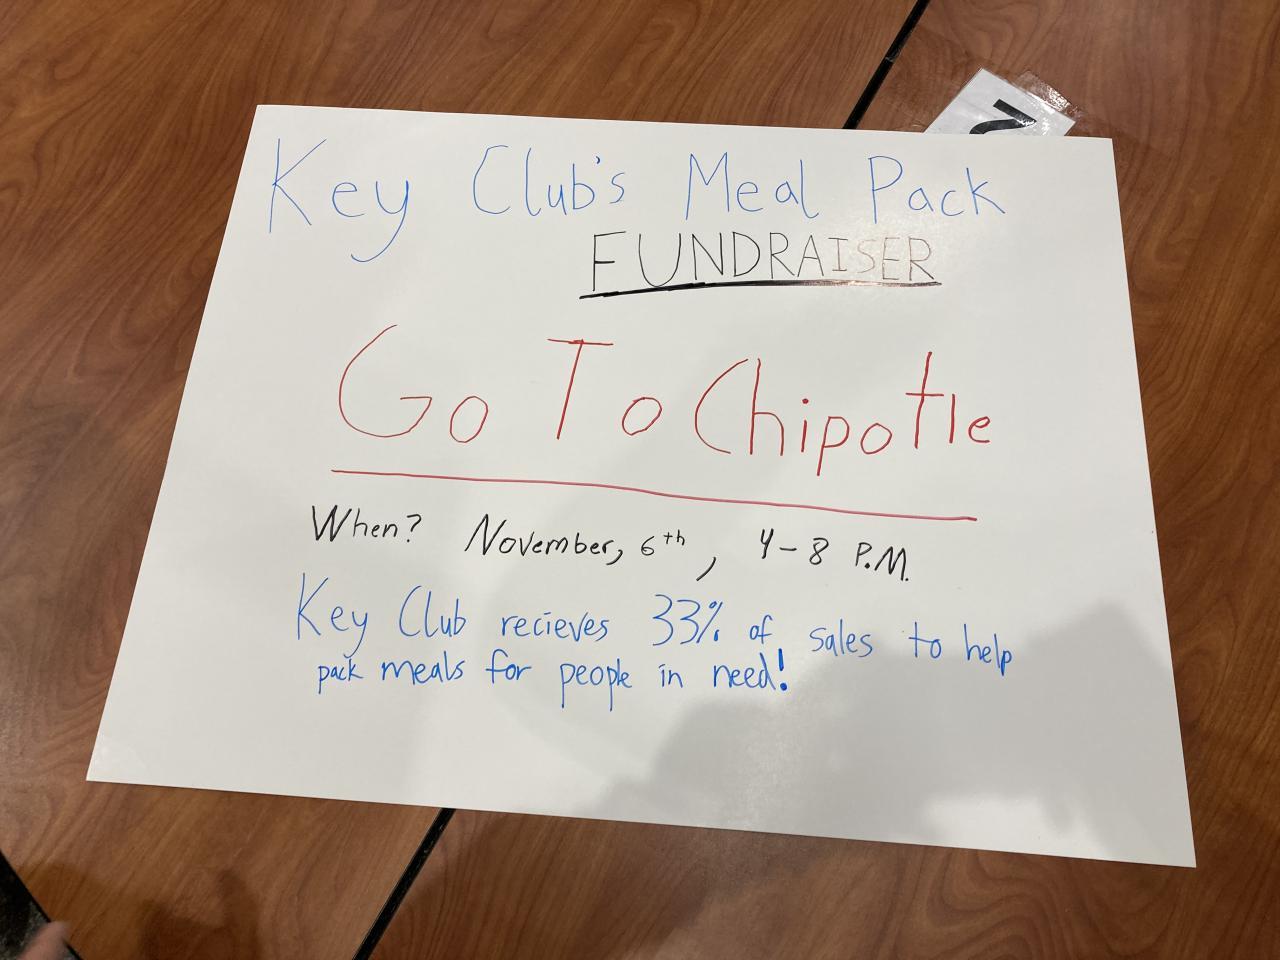 Key Club's Meal Pack
FUNDRAISER
Go To Chipotle
When? November, 6th, 4-8 P.M.
Key Club recieves 33% of sales to help
pack meals for people in need!